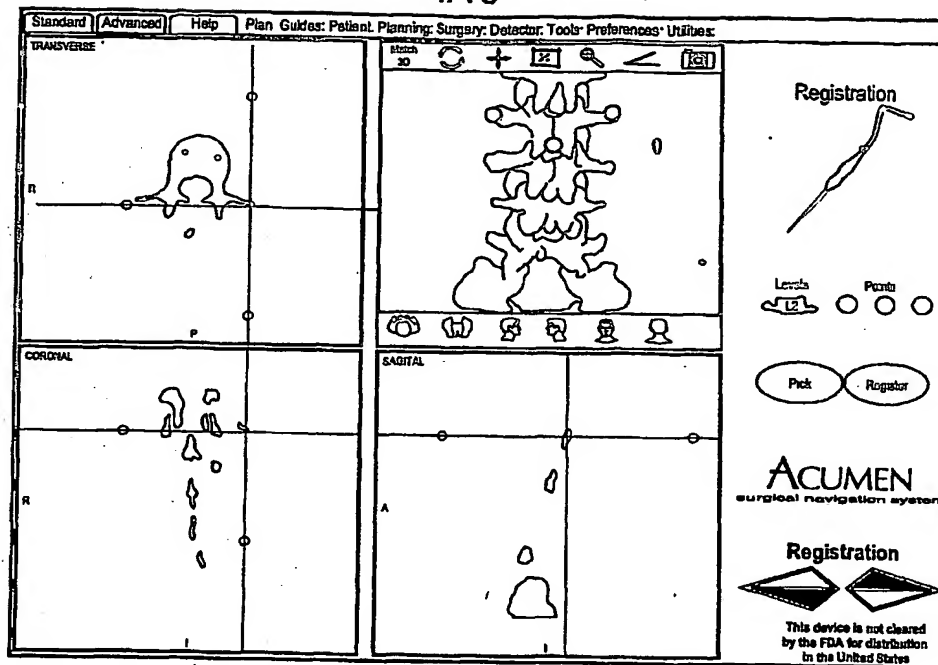 Standard Advanced Help Plan Guides: Patient. Planning: Surgery: Detector: Tools Preferences Utilities:
TRANSVERSE
R
P
Match
3D
Registration
Levels Points
L2
Pick Register
CORONAL
R
I
SAGITAL
A
I
ACUMEN
surgical navigation system
Registration
This device is not cleared
by the FDA for distribution
in the United States